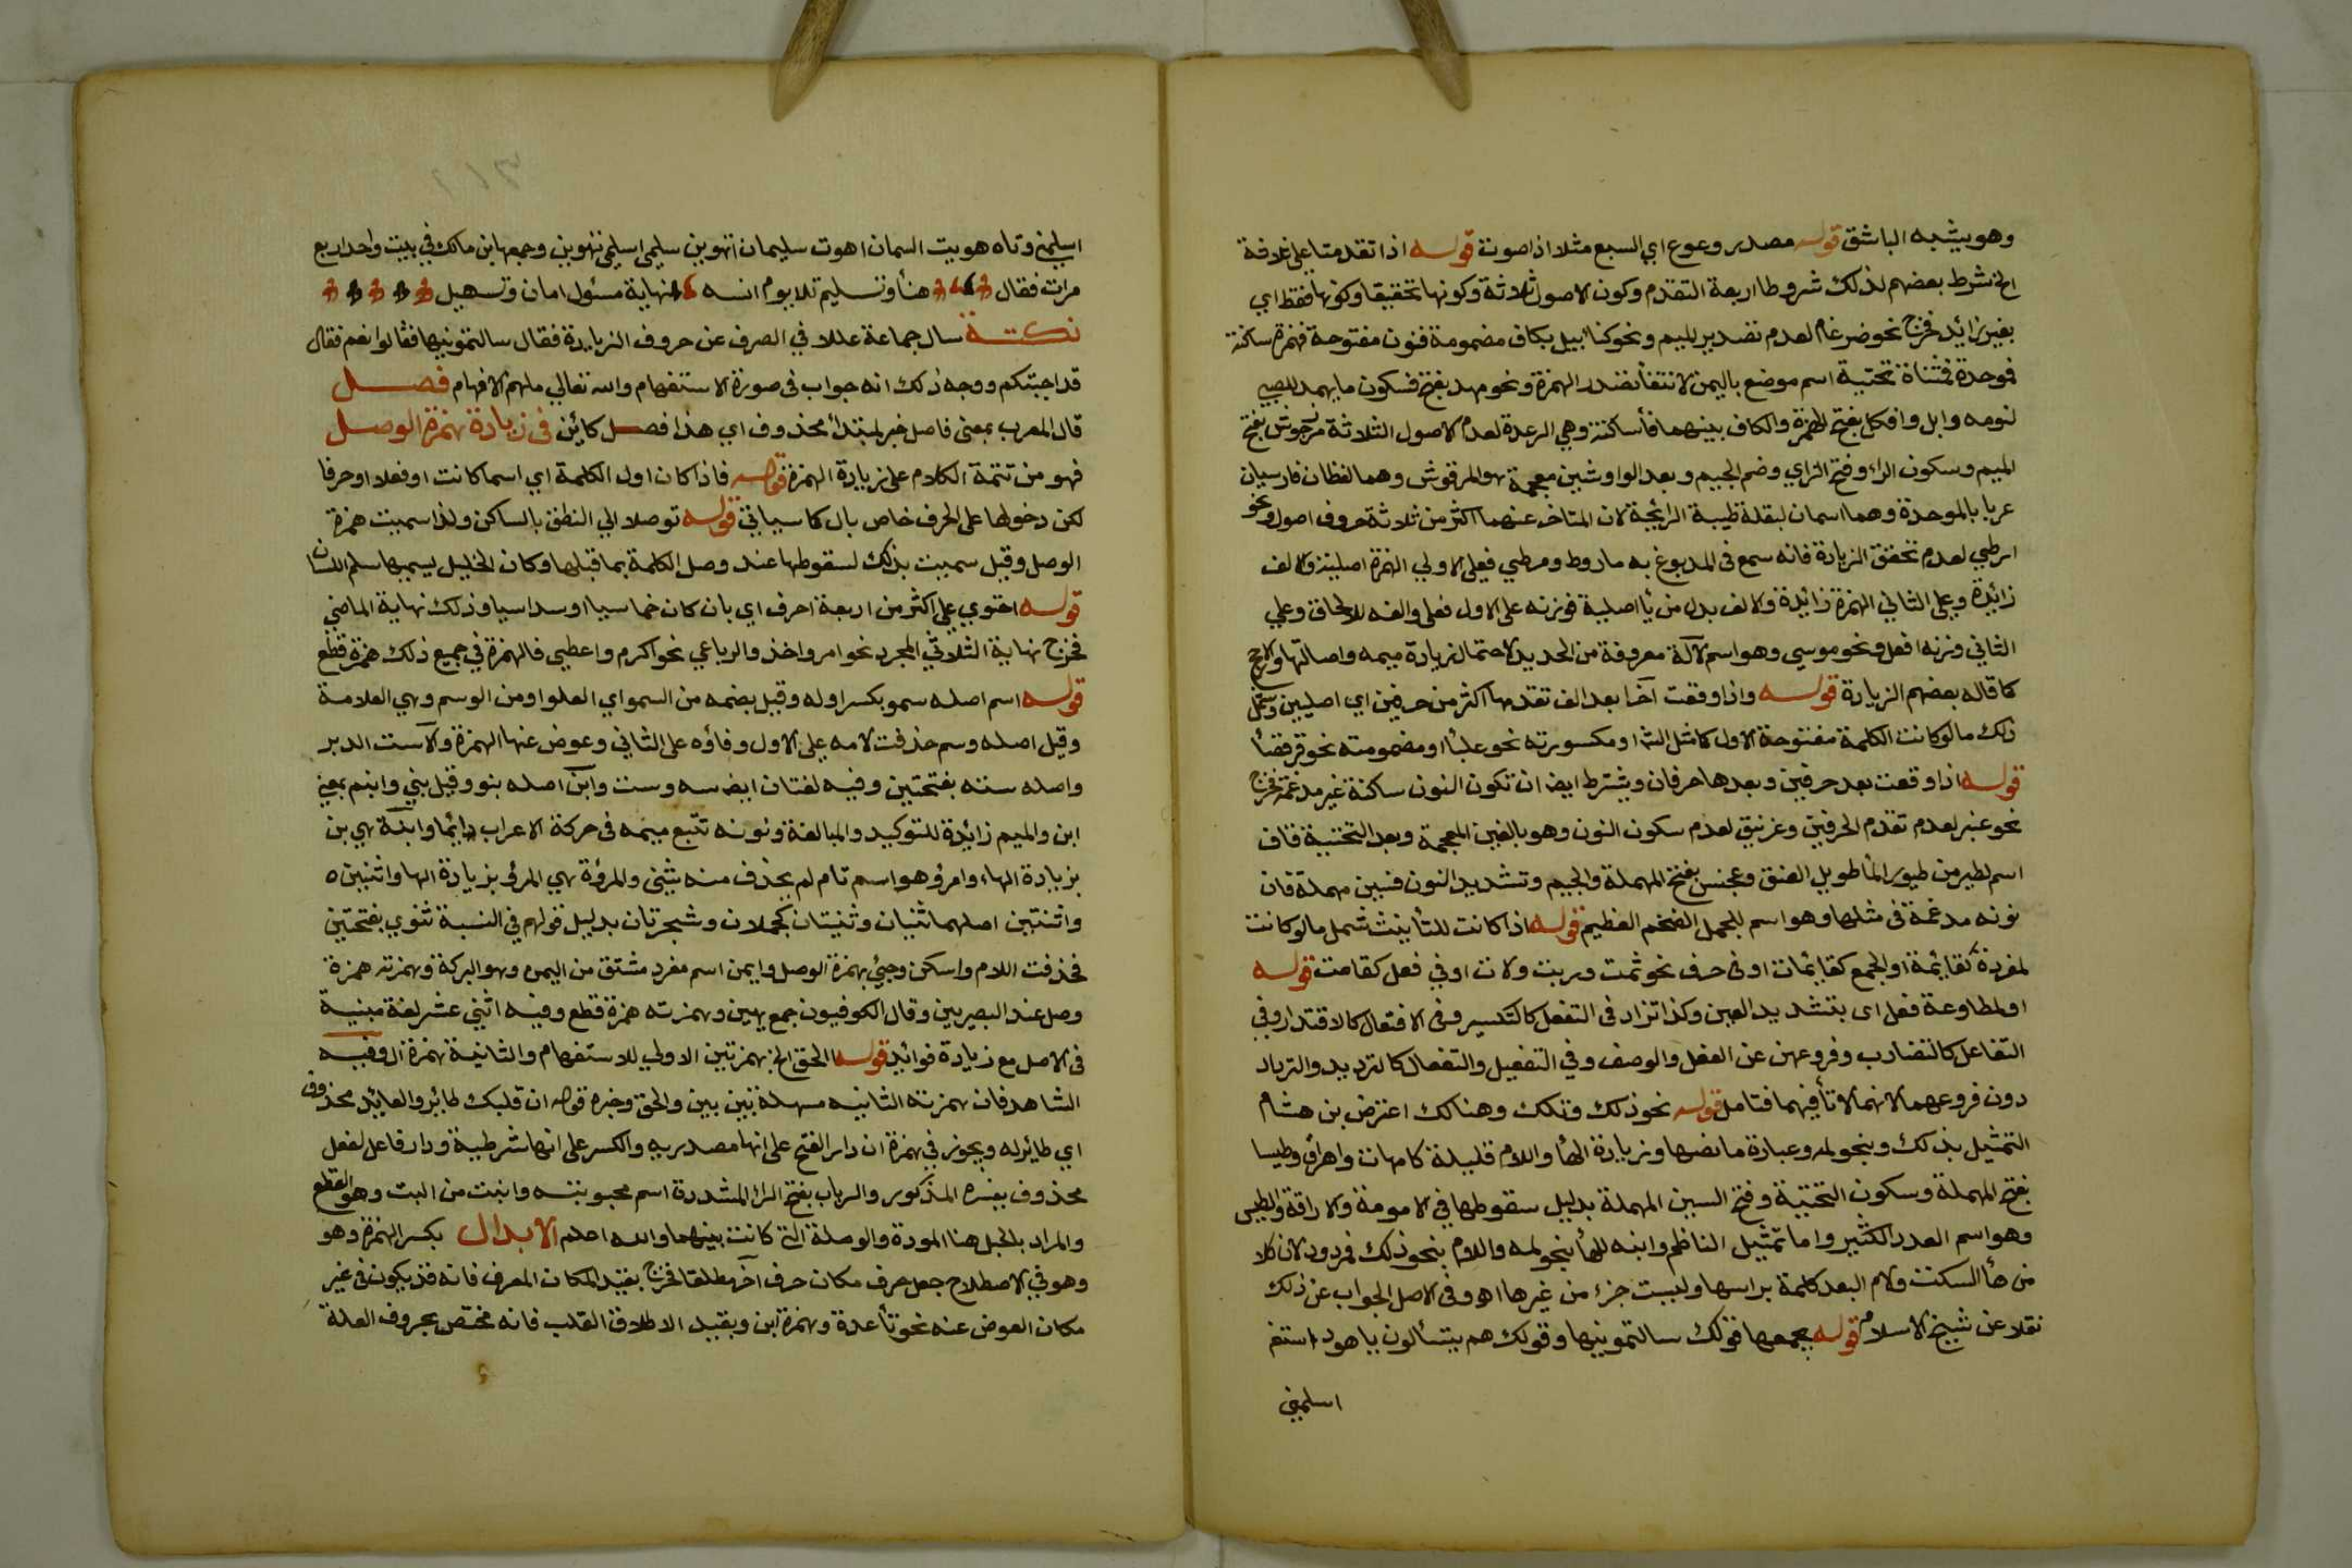 وهو يشبه الباشق قوله مصدر وعوع اي السبع مثلا اذا صوت قوله اذا تقدمتا على ثلاثة
الخ شرط بعضهم لذلك شروطا اربعة التقدم وكون الاصول ثلاثة وكونها تحقيقا وكونها فقط اي
بغير زائد فخرج نحو ضرغام لعدم تصدير الميم ونحو كنابيل بكاف مضمومة فنون مفتوحة فهمزة ساكنة
فموحدة فمثناة تحتية اسم موضع باليمن لانتفا تصدر الهمزة ونحو مهد بفتح فسكون ما يمهد للصبي
لنومه وابل وافكل بفتح الهمزة والكاف بينهما فأ ساكنة وهي الرعدة لعدم الاصول الثلاثة مرزجوش بفتح
الميم وسكون الراء وفتح الزاي وضم الجيم وبعد الواو شين معجمة هو المرقوش وهما لفظان فارسيان
عربا بالموحدة وهما اسمان لبقلة طيبة الرائحة لان المتاخر عنهما اكثر من ثلاثة حروف اصول ونحو
ارطي لعدم تحقق الزيادة فانه سمع في المدبوغ به ماروط ومرطي فعلى الاولي الهمزة اصلية والالف
زائدة وعلى الثاني الهمزة زائدة والالف بدل من يأ اصلية فوزنه على الاول فعلى والفه للالحاق وعلي
الثاني وزنه افعل ونحو موسي وهو اسم لآلة معروفة من الحديد لاحتمال زيادة ميمه واصالتها والارجح
كما قاله بعضهم الزيادة قوله واذا وقعت آخرا بعد الف تقدمها اكثر من حرفين اي اصليين وشمل
ذلك مالو كانت الكلمة مفتوحة الاول كامثل الشرا ومكسورته نحو علبأ او مضمومته نحو قرفصأ
قوله اذا وقعت بعد حرفين وبعدها حرفان ويشترط ايضا ان تكون النون ساكنة غير مدغمة فخرج
نحو عنبر لعدم تقدم الحرفين وغرنيق لعدم سكون النون وهو بالغين المعجمة وبعد التحتية قاف
اسم لطير من طيور المأ طويل العنق وعجنس بفتح المهملة والجيم وتشديد النون فسين مهملة فان
نونه مدغمة في مثلها وهو اسم للجمل الضخم العظيم قوله اذا كانت للتأنيث شمل مالو كانت
لمفردة كقايمة او لجمع كقايمات او في حرف نحو ثمت وربت ولات او في فعل كقامت قوله
او لمطاوعة فعل اى بتشديد العين وكذا تزاد في التفعل كالتكسر وفي الافتعال كالاقتدار وفي
التفاعل كالتضارب وفروعهن عن الفعل والوصف وفي التفعيل والتفعال كالترديد والترداد
دون فروعهما لانهما لا تأ فيهما فتامل قوله نحو ذلك وتلك وهنالك اعترض بن هشام
التمثيل بذلك وبنحو لمه وعبارة ما نصها وزيادة الهأ واللام قليلة كامهات واهراق وطيسل
بفتح المهملة وسكون التحتية وفتح السين المهملة بدليل سقوطها في الامومة والاراقة والطيس
وهو اسم العدد الكثير واما تمثيل الناظم وابنه للهأ بنحو لمه واللام بنحو ذلك فمردود لان كلا
من هأ السكت ولام البعد كلمة براسها وليست جزء من غيرها اهـ وفي الاصل الجواب عن ذلك
نقلا عن شيخ الاسلام قوله يجمعها قولك سالتمونيها وقولك هم يتسألون يا هود استغر
اسلمني
اسلمني وتاه هو بيت السمان اهوت سليمان اتهوين سليمي اسليمي تهوين وجمعها ابن مالك في بيت واحد اربع
مرات فقال هنأ وتسليم تلا يوم انسه نهاية مسئول امان وتسهيل
نكتة سال جماعة عللا في الصرف عن حروف الزيادة فقال سالتمونيها فقالوا نعم فقال
قد اجبتكم ووجه ذلك انه جواب في صورة الاستفهام والله تعالي ملهم الافهام فصل
قال المعرب بمعنى فاصل خبر لمبتدأ محذوف اي هذا فصل كائن في زيادة همزة الوصل
فهو من تتمة الكلام على زيادة الهمزة قوله فاذا كان اول الكلمة اي اسما كانت او فعلا او حرفا
لكن دخولها على الحرف خاص بال كما سياتي قوله توصلا الي النطق بالساكن ولذا سميت همزة
الوصل وقيل سميت بذلك لسقوطها عند وصل الكلمة بما قبلها وكان الخليل يسميها سلم اللسان
قوله احتوي على اكثر من اربعة احرف اي بان كان خماسيا او سداسيا وذلك نهاية الماضي
فخرج نهاية الثلاثي المجرد نحو امر واخذ والرباعي نحو اكرم واعطي فالهمزة في جميع ذلك همزة قطع
قوله اسم اصله سمو بكسر اوله وقيل بضمه من السمو اي العلو او من الوسم وهي العلامة
وقيل اصله وسم حذفت لامه على الاول وفاؤه على الثاني وعوض عنها الهمزة والاست الدبر
واصله سته بفتحتين وفيه لغتان ايضا سه وست وابن اصله بنو وقيل بني وابنم بمعني
ابن والميم زائدة للتوكيد والمبالغة ونونه تتبع ميمه في حركة الاعراب دائما وابنة هي بن
بزيادة الهاء وامرؤ هو اسم تام لم يحذف منه شيئ والمرؤة هي المرؤ بزيادة الها واثنين ه
واثنتين اصلهما ثنيان وثنيتان كجملان وشجرتان بدليل قولهم في النسبة ثنوي بفتحتين
فحذفت اللام واسكن وجيئ بهمزة الوصل وايمن اسم مفرد مشتق من اليمن وهو البركة وهمزته همزة
وصل عند البصريين وقال الكوفيون جمع يمين وهمزته همزة قطع وفيه اثني عشر لغة مبنية
في الاصل مع زيادة فوائد قوله الحق الخ بهمزتين الاولي للاستفهام والثانية همزة ال وفيه
الشاهد فان همزته الثانيه مسهلة بين بين والحق وخبره قوله ان قلبك طائر والعائد محذوف
اي طائر له ويجوز في همزة ان دار الفتح على انها مصدريه والكسر على انها شرطية ودار فاعل لفعل
محذوف يفسره المذكور والرباب بفتح الرا المشددة اسم محبوبته وانبت من البت وهو القطع
والمراد بالحبل هنا المودة والوصلة التي كانت بينهما والله اعلم الابدال بكسر الهمزة وهو
وهو في الاصطلاح جعل حرف مكان حرف آخر مطلقا فخرج بقيد المكان المعرف فانه قد يكون في غير
مكان العوض عنه نحو تأ عدة وهمزة ابن وبقيد الاطلاق القلب فانه مختص بحروف العلة